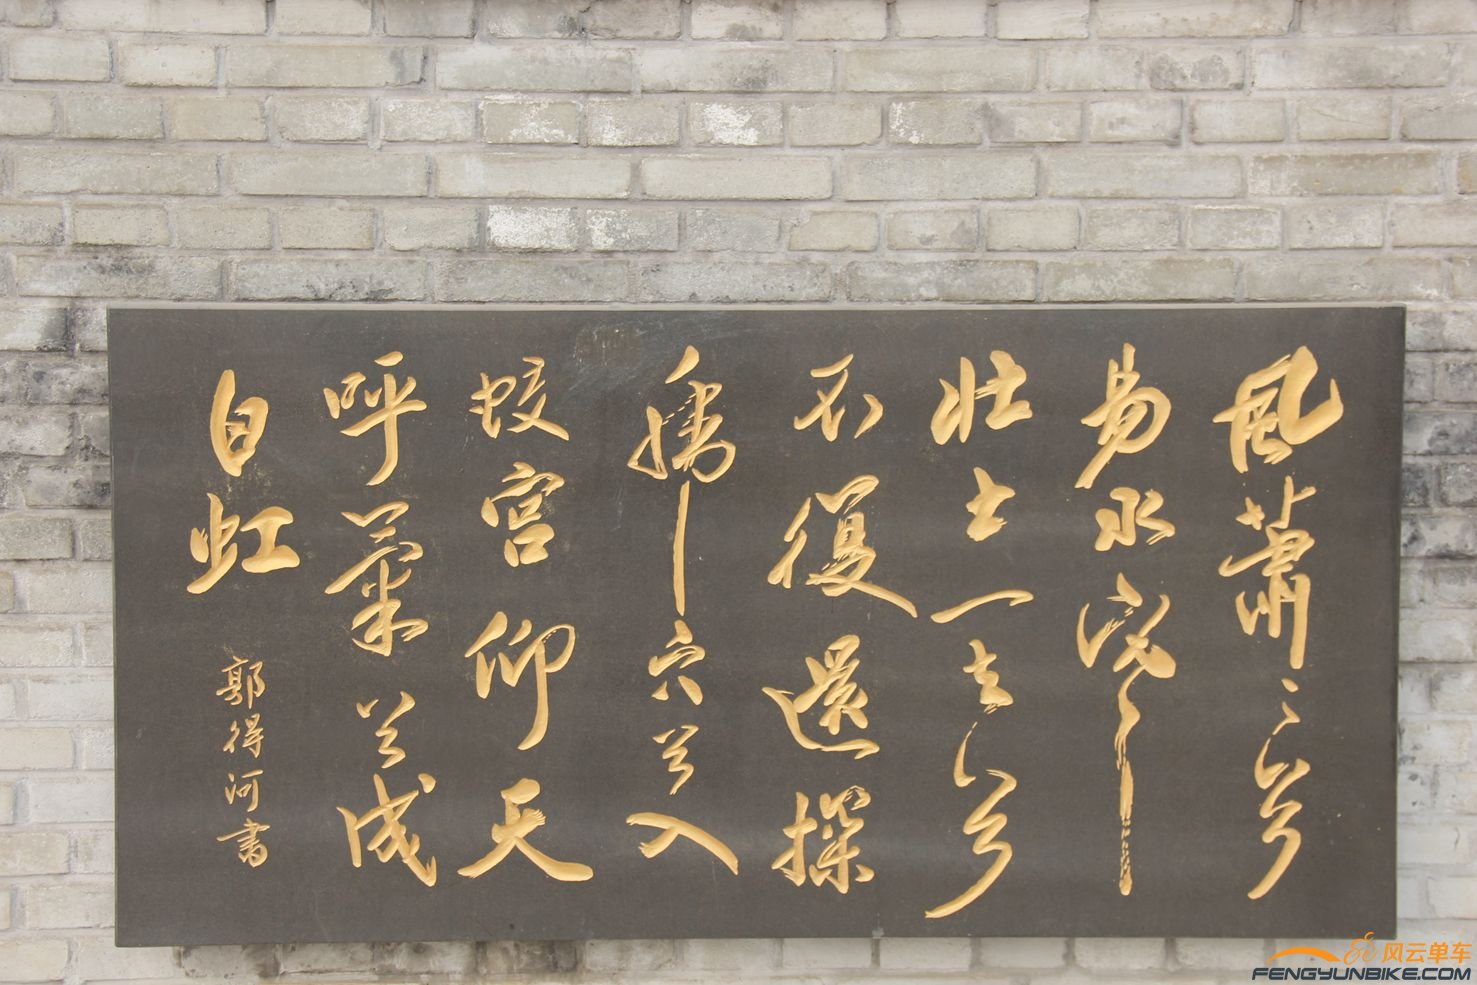 風蕭〻兮
易水寒
壯士一去兮
不復還探
穴兮入
蛟宫仰天
呼氣兮成
白虹
郭得河書
风云单车
FENGYUNBIKE.COM